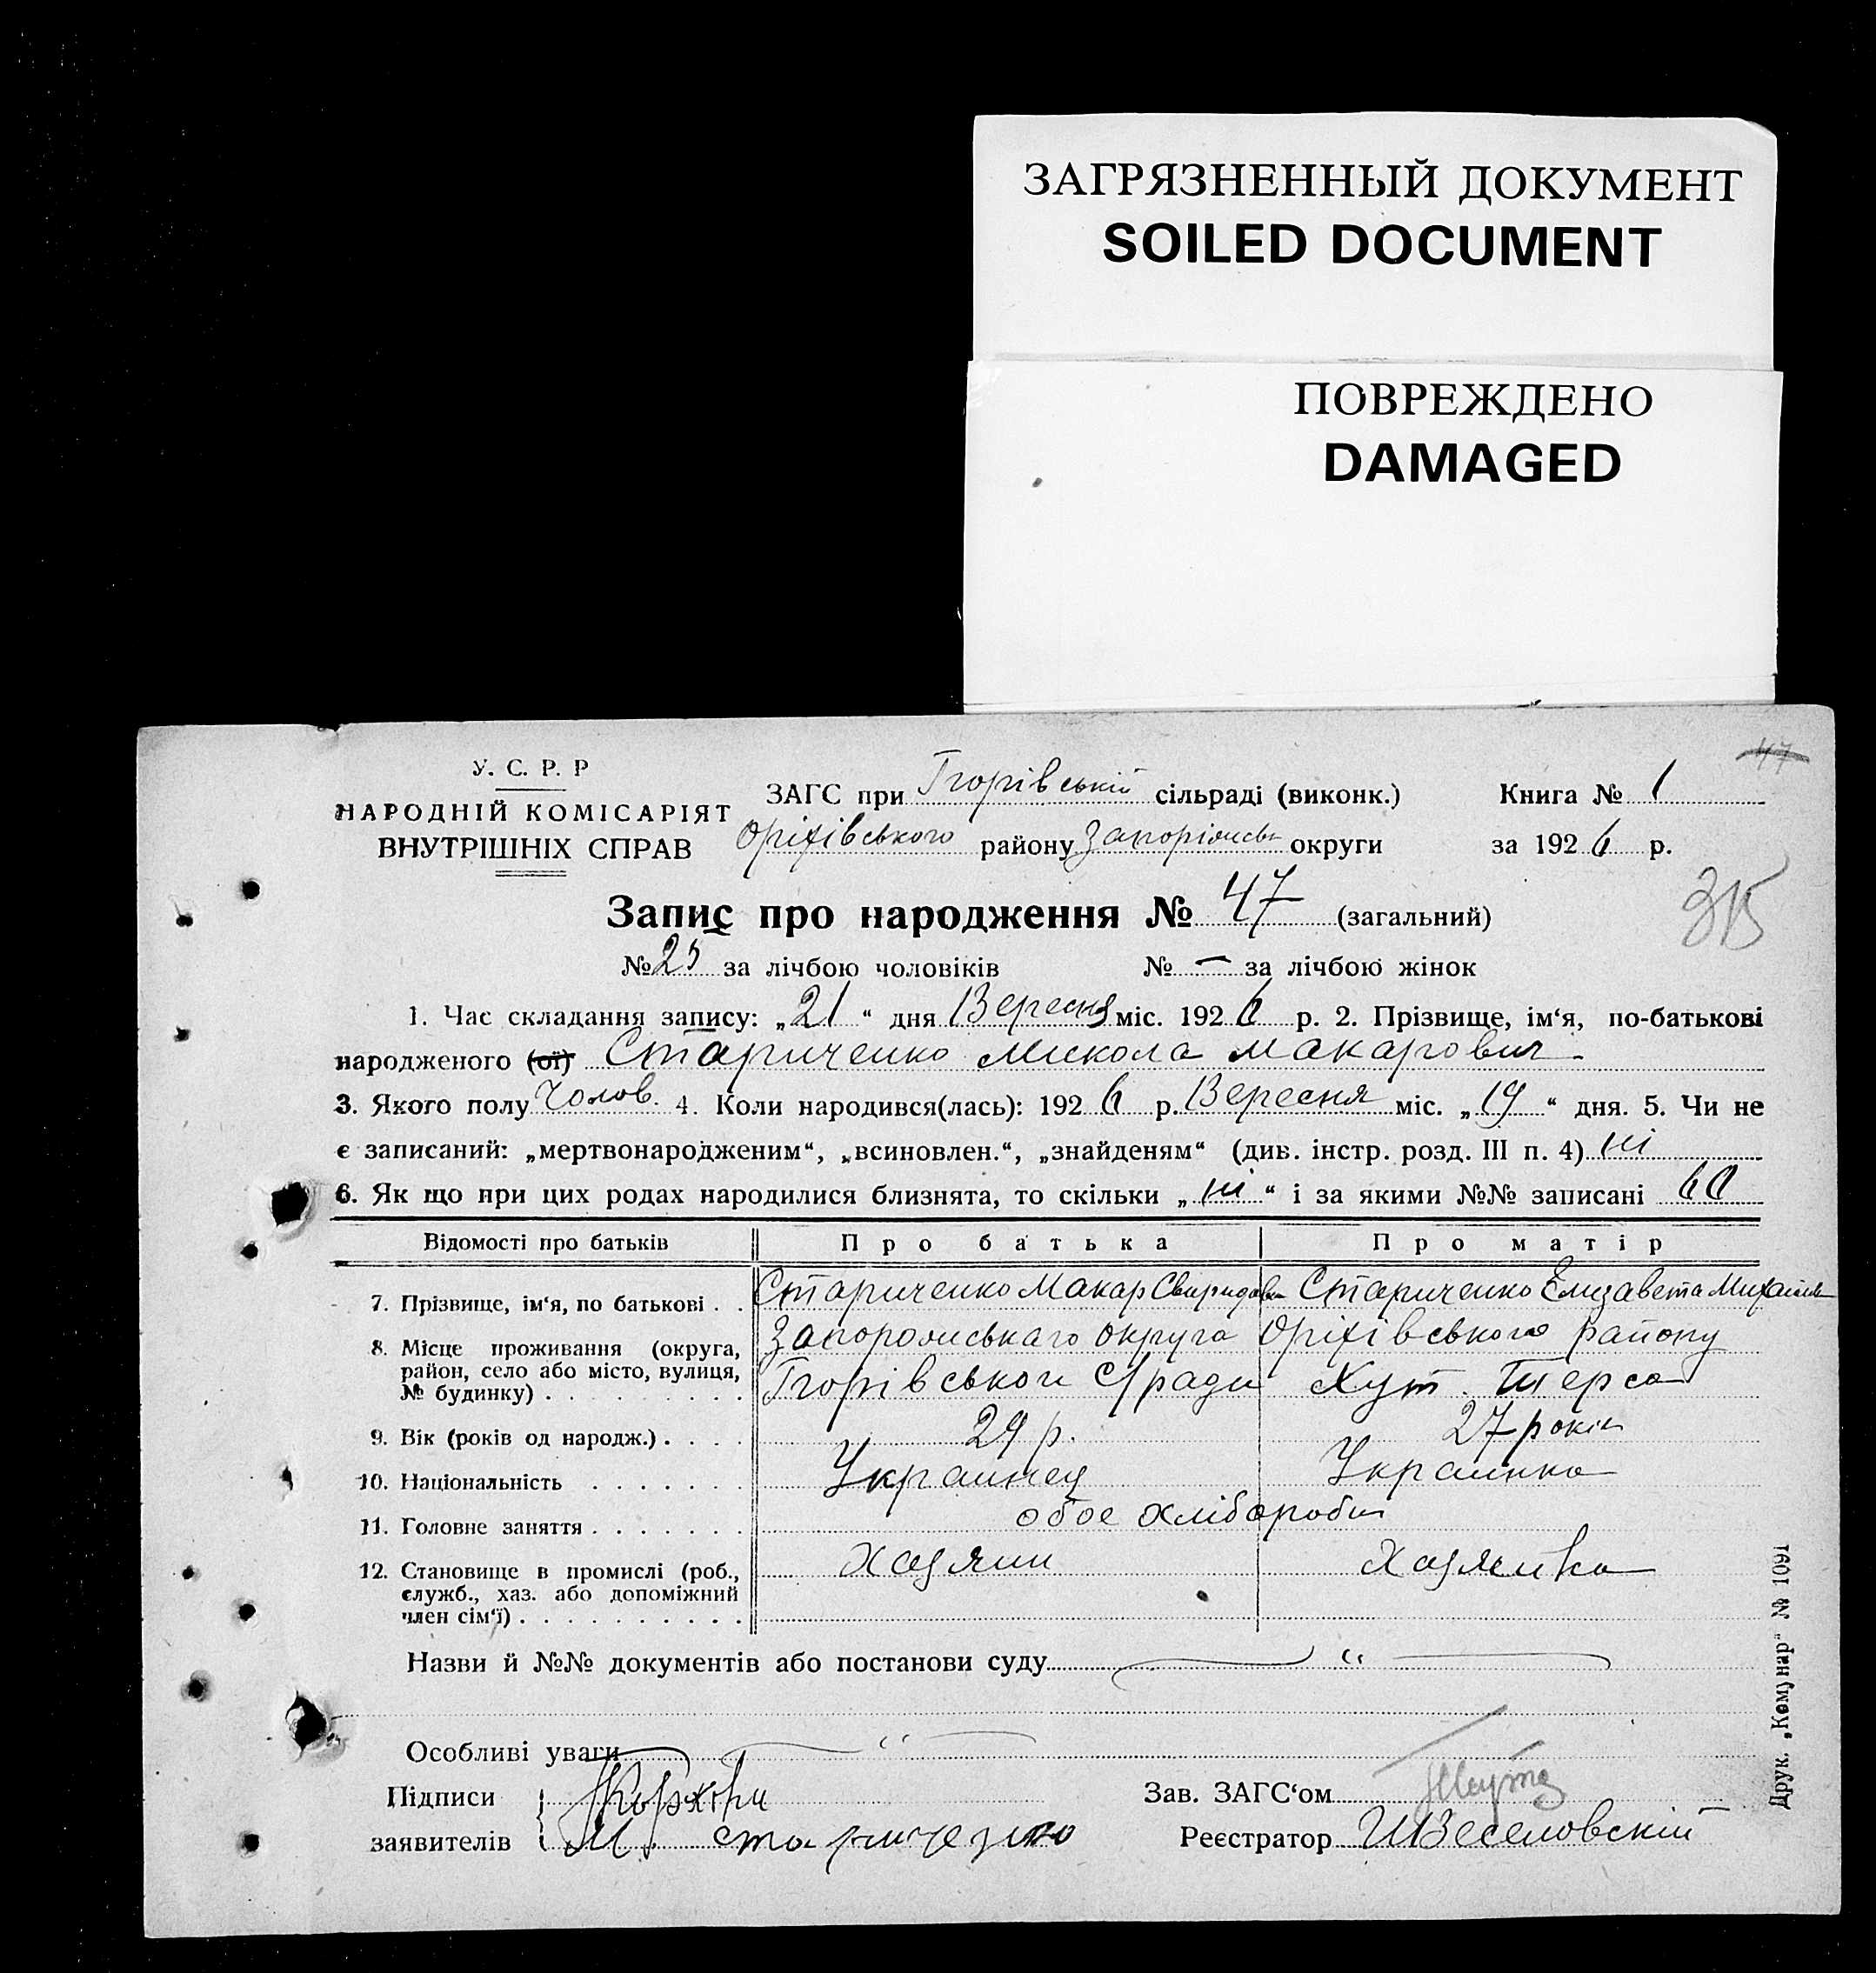 ЗАГРЯЗНЕННЫЙ ДОКУМЕНТ
SOILED DOCUMENT
ПОВРЕЖДЕНО
DAMAGED
47
У. С. Р. Р
НАРОДНІЙ КОМІСАРІЯТ
ВНУТРІШНІХ СПРАВ
ЗАГС при Ігорівській сільраді (виконк.) Книга № 1
Оріхівського району Запоріжськ округи за 1926 р.
Запис про народження № 47 (загальний)
315
№ 25 за лічбою чоловіків № — за лічбою жінок
1. Час складання запису: „21“ дня Вересня міс. 1926 р. 2. Прізвище, ім‘я, по-батькові
народженого (ої) Стариченко Микола Макарович
3. Якого полу Чолов. 4. Коли народився(лась): 1926 р. Вересня міс. „19“ дня. 5. Чи не
є записаний: „мертвонародженим“, „всиновлен.“, „знайденям“ (див. інстр. розд. III п. 4) ні
6. Як що при цих родах народилися близнята, то скільки „ні“ і за якими №№ записані
Відомості про батьків Про батька Про матір
7. Прізвище, ім‘я, по батькові . . Стариченко Макар Свиридов Стариченко Елизавета Михайлів
8. Місце проживання (округа, район, село або місто, вулиця, № будинку) . . . . . . . . Запорожськаго округа Оріхівського району
Ігорівськои С/ради Хут. Терса
9. Вік (років од народж.) . . . . 29 р. 27 років
10. Національність . . . . . . . Украинец Украинка
11. Головне заняття . . . . . . . обое хлібороби
12. Становище в промислі (роб., служб., хаз. або допоміжний член сім‘ї) . . . . . . . . . . Хазяин Хазяйка
Назви й №№ документів або постанови суду — “ —
Особливі уваги — “ —
Підписи
заявителів М. Стариченко
Зав. ЗАГС‘ом
Реєстратор ИВеселовскій
Друк. „Комунар“ № 1091